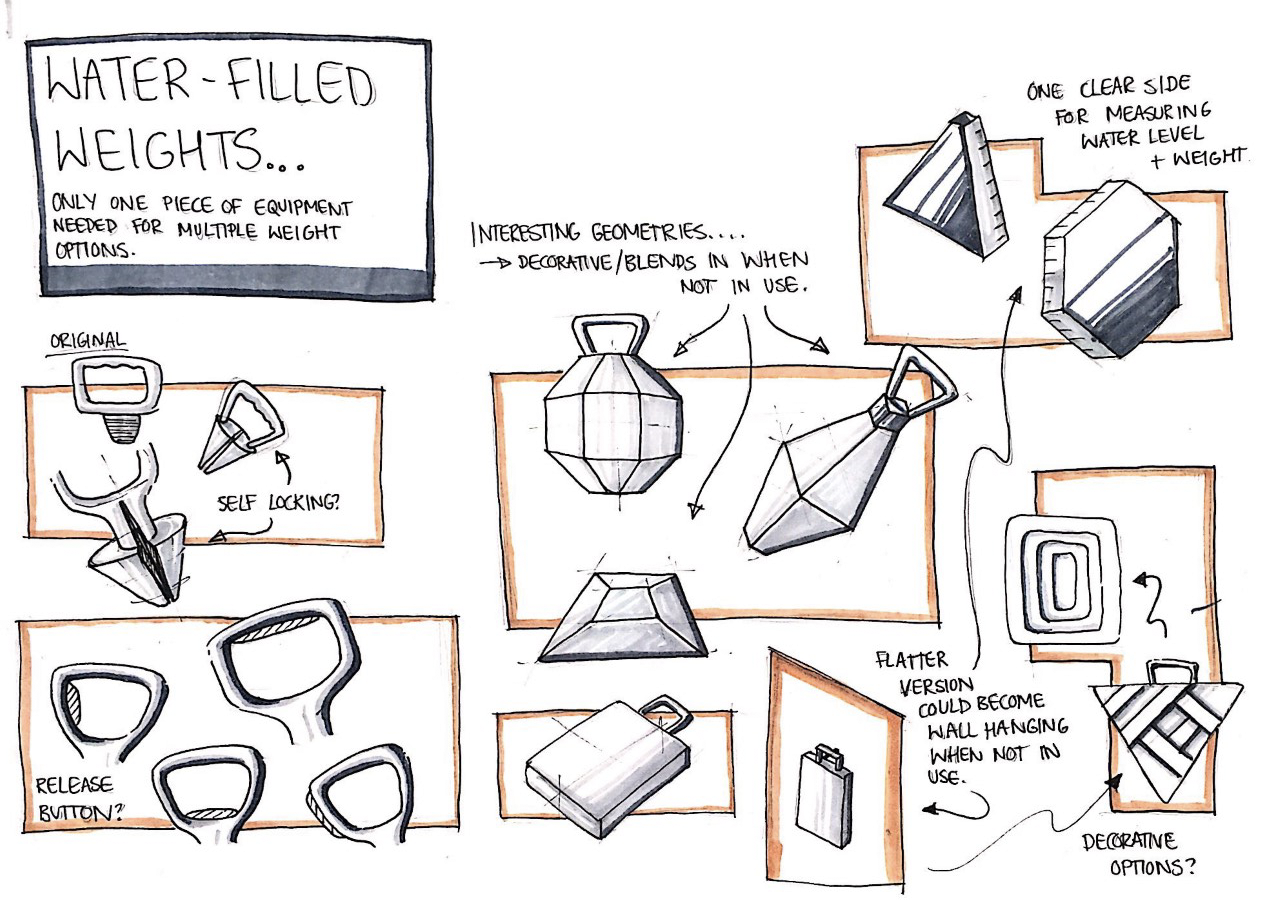 WATER-FILLED
WEIGHTS...
ONLY ONE PIECE OF EQUIPMENT
NEEDED FOR MULTIPLE WEIGHT
OPTIONS.
ORIGINAL
SELF LOCKING?
RELEASE
BUTTON?
INTERESTING GEOMETRIES....
→ DECORATIVE/BLENDS IN WHEN
NOT IN USE.
ONE CLEAR SIDE
FOR MEASURING
WATER LEVEL
+ WEIGHT
FLATTER
VERSION
COULD BECOME
WALL HANGING
WHEN NOT IN
USE.
DECORATIVE
OPTIONS?